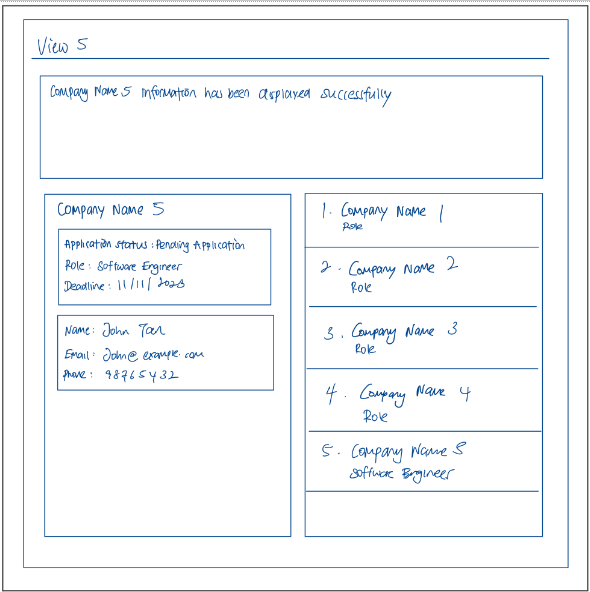 View 5
Company Name 5 information has been displayed successfully
Company Name 5
Application status : Pending Application
Role : Software Engineer
Deadline : 11/11/2023
Name : John Tan
Email : John@example.com
Phone : 98765432
1. Company Name 1
Role
2. Company Name 2
Role
3. Company Name 3
Role
4. Company Name 4
Role
5. Company Name 5
Software Engineer